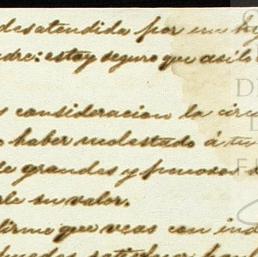 desatendida por un
adre: estoy seguro que así lo
consideracion la circ
haber molestado á tu
de grandes y penosos
su valor.
firme que veas con ind
puedes